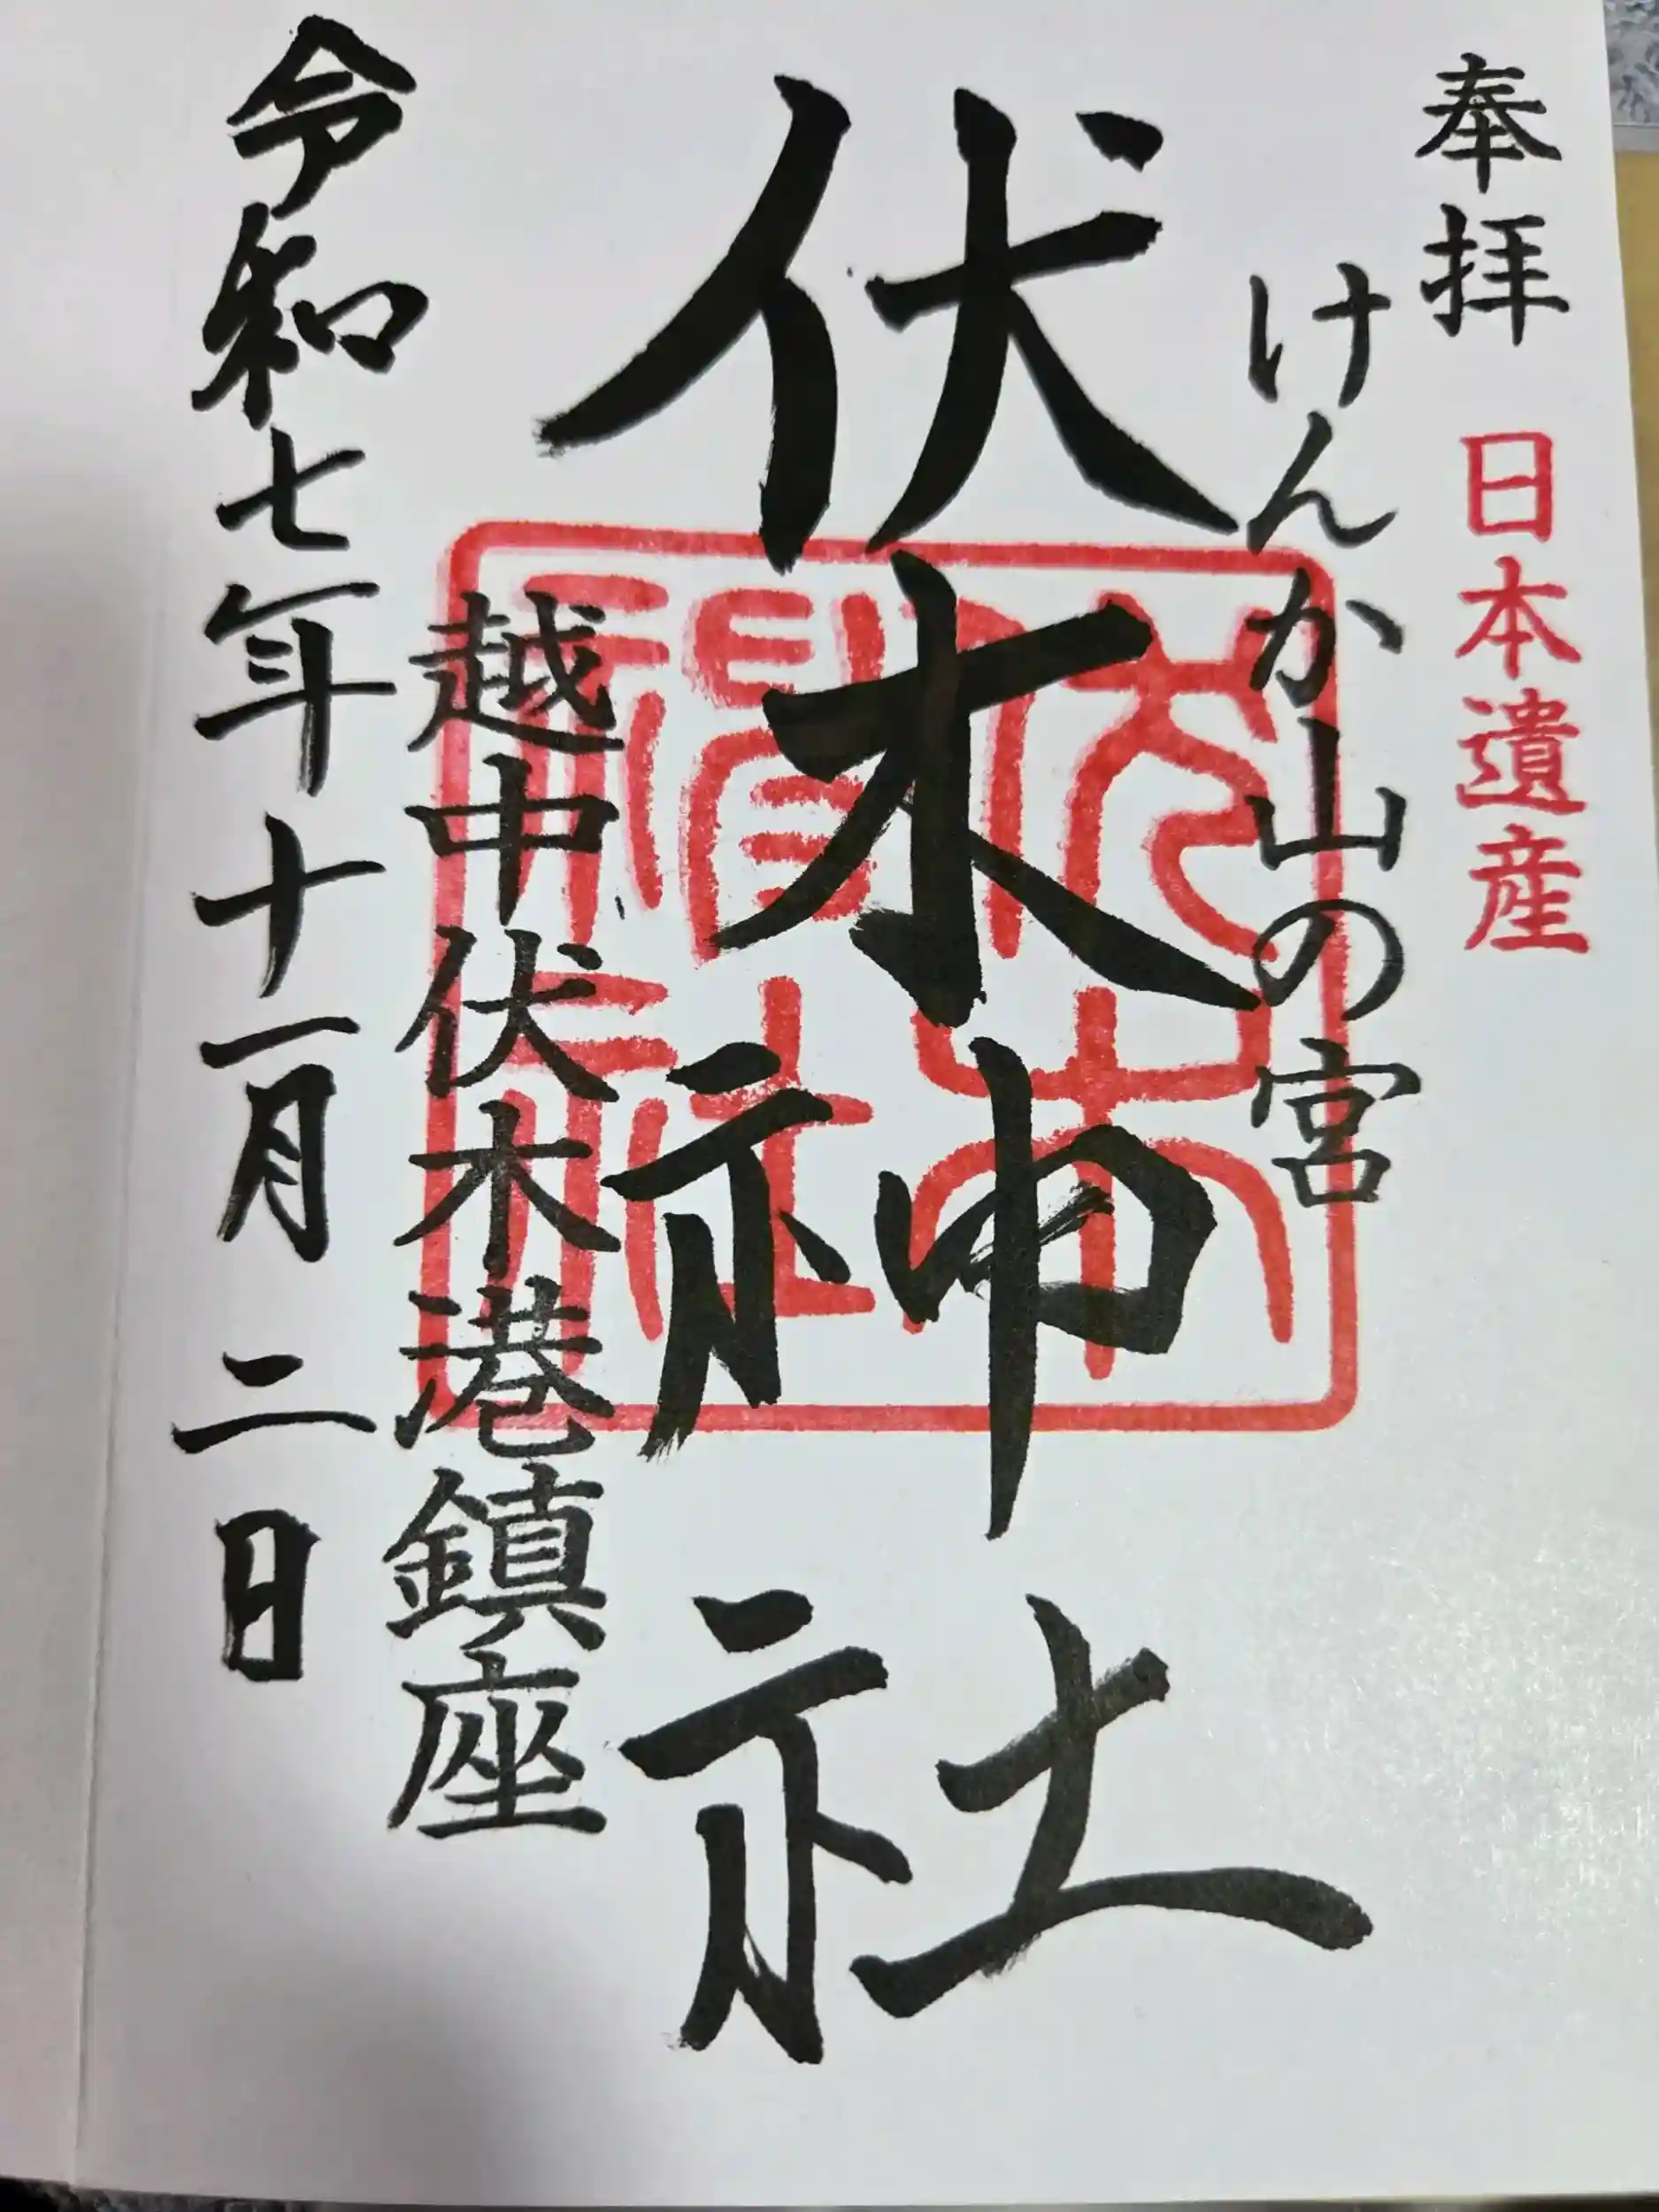 奉拝 日本遺産
けんか山の宮
伏木神社
越中伏木港鎮座
令和七年十一月二日
伏木神社